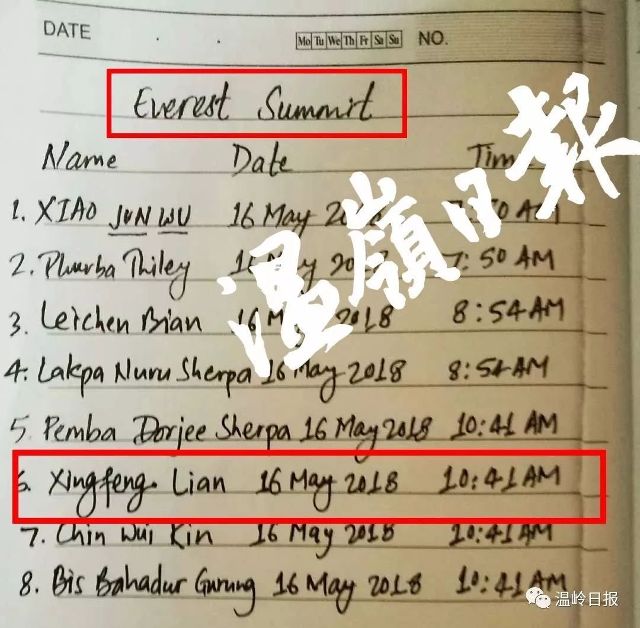 DATE Mo Tu We Th Fr Sa Su NO.
Everest Summit
Name Date Tim
1. XIAO JUN WU 16 May 2018 AM
2. Phurba Thiley 16 May 2018 7:50 AM
3. Leichen Bian 16 May 2018 8:54 AM
4. Lakpa Nuru Sherpa 16 May 2018 8:54 AM
5. Pemba Dorjee Sherpa 16 May 2018 10:41 AM
6. Xingfeng Lian 16 May 2018 10:41 AM
7. Chin Wui Kin 16 May 2018 10:41 AM
8. Bis Bahadur Gurung 16 May 2018 10:41 AM
温嶺日報
温岭日报